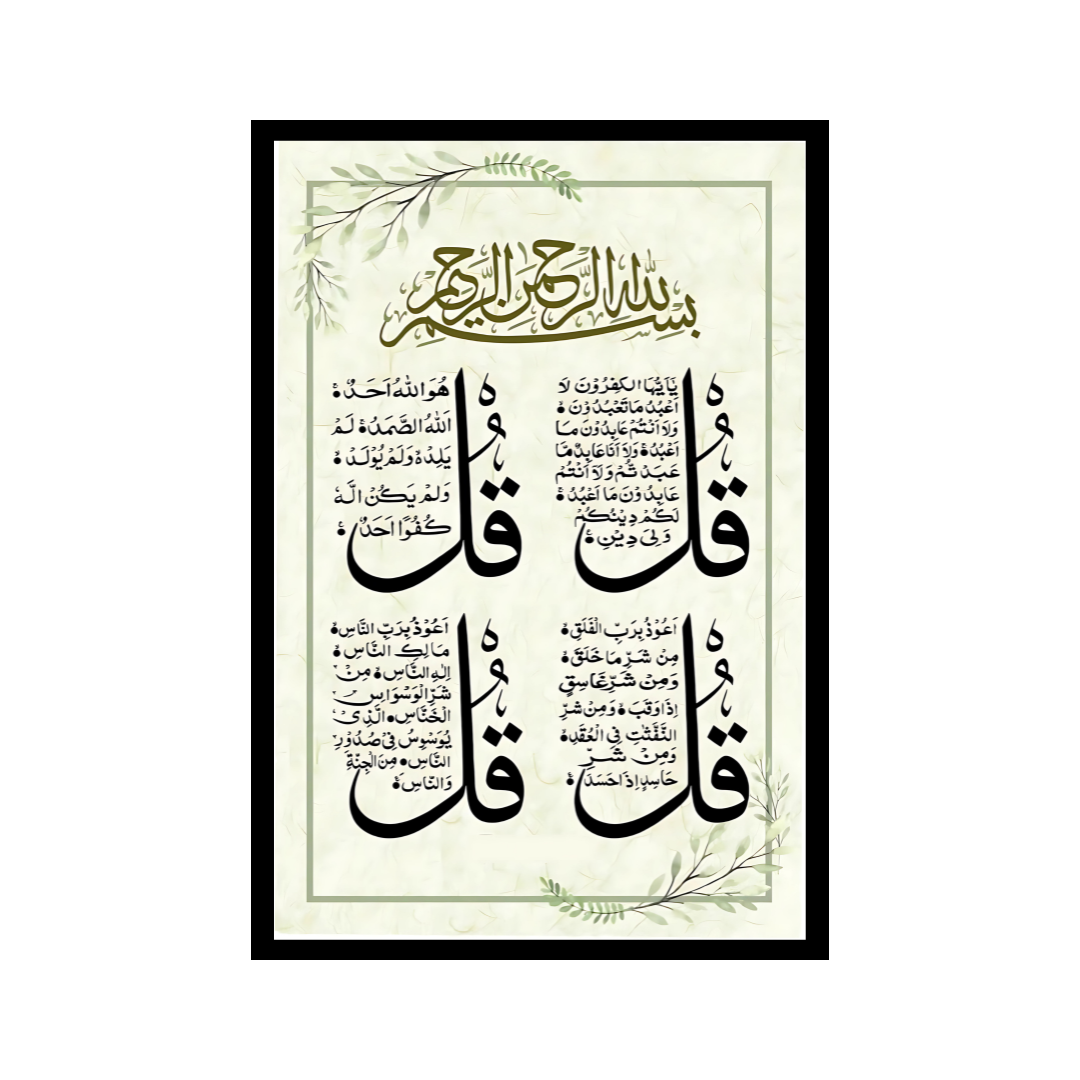 بسم الله الرحمن الرحيم
قُلْ
يٰٓاَيُّهَا الْكٰفِرُوْنَ لَا
اَعْبُدُ مَا تَعْبُدُوْنَ
وَلَا اَنْتُمْ عَابِدُوْنَ مَا
اَعْبُدُ وَلَا اَنَا عَابِدٌ مَّا
عَبَدْ تُّمْ وَلَا اَنْتُمْ
عَابِدُوْنَ مَا اَعْبُدُ
لَكُمْ دِيْنُكُمْ
وَلِيَ دِيْنِ
قُلْ
هُوَ اللهُ اَحَدٌ
اَللهُ الصَّمَدُ لَمْ
يَلِدْ وَلَمْ يُوْلَدْ
وَلَمْ يَكُنْ لَّهٗ
كُفُوًا اَحَدٌ
قُلْ
اَعُوْذُ بِرَبِّ الْفَلَقِ
مِنْ شَرِّ مَا خَلَقَ
وَمِنْ شَرِّ غَاسِقٍ
اِذَا وَقَبَ وَمِنْ شَرِّ
النَّفّٰثٰتِ فِي الْعُقَدِ
وَمِنْ شَرِّ
حَاسِدٍ اِذَا حَسَدَ
قُلْ
اَعُوْذُ بِرَبِّ النَّاسِ
مَالِكِ النَّاسِ
اِلٰهِ النَّاسِ مِنْ
شَرِّ الْوَسْوَاسِ
الْخَنَّاسِ الَّذِيْ
يُوَسْوِسُ فِيْ صُدُوْرِ
النَّاسِ مِنَ الْجِنَّةِ
وَالنَّاسِ